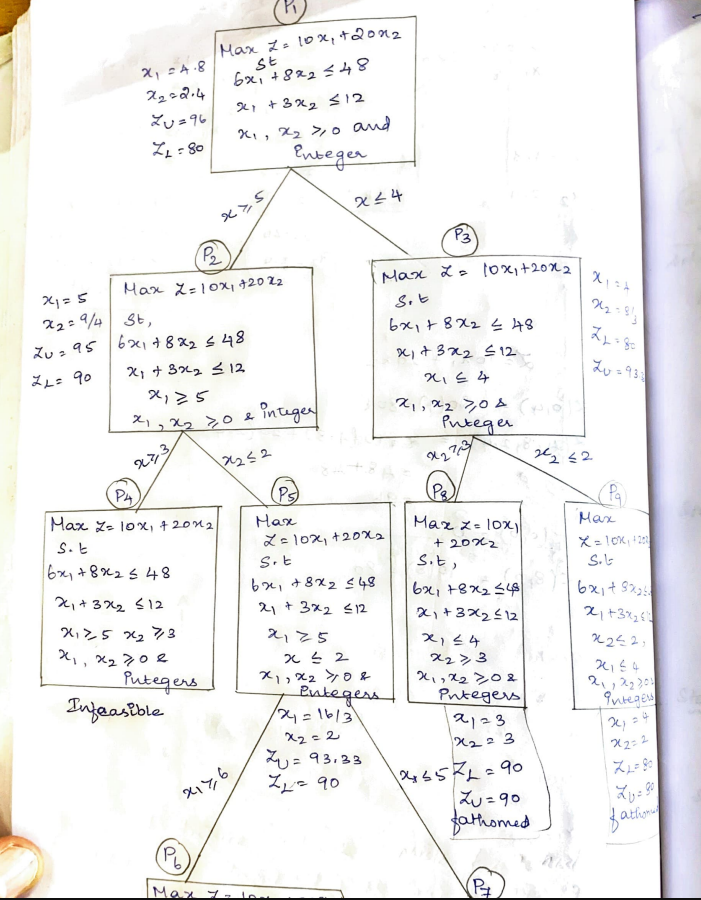 P1
Max Z = 10x₁ + 20x₂
St
6x₁ + 8x₂ ≤ 48
x₁ + 3x₂ ≤ 12
x₁, x₂ ≥ 0 and
Integer
x₁ = 4.8
x₂ = 2.4
ZU = 96
ZL = 80
x ≥ 5
x ≤ 4
P2
Max Z = 10x₁ + 20x₂
St,
6x₁ + 8x₂ ≤ 48
x₁ + 3x₂ ≤ 12
x₁ ≥ 5
x₁, x₂ ≥ 0 & integer
x₁ = 5
x₂ = 9/4
ZU = 95
ZL = 90
P3
Max Z = 10x₁ + 20x₂
S.t
6x₁ + 8x₂ ≤ 48
x₁ + 3x₂ ≤ 12
x₁ ≤ 4
x₁, x₂ ≥ 0 &
Integer
x₁ = 4
x₂ = 8/3
ZL = 80
ZU = 93.
x ≥ 3
x₂ ≤ 2
x₂ ≥ 3
x₂ ≤ 2
P4
Max Z = 10x₁ + 20x₂
S.t
6x₁ + 8x₂ ≤ 48
x₁ + 3x₂ ≤ 12
x₁ ≥ 5 x₂ ≥ 3
x₁, x₂ ≥ 0 &
Integers
Infeasible
P5
Max
Z = 10x₁ + 20x₂
S.t
6x₁ + 8x₂ ≤ 48
x₁ + 3x₂ ≤ 12
x₁ ≥ 5
x ≤ 2
x₁, x₂ ≥ 0 &
Integers
x₁ = 16/3
x₂ = 2
ZU = 93.33
ZL = 90
P8
Max Z = 10x₁
+ 20x₂
S.t,
6x₁ + 8x₂ ≤ 48
x₁ + 3x₂ ≤ 12
x₁ ≤ 4
x₂ ≥ 3
x₁, x₂ ≥ 0 &
Integers
x₁ = 3
x₂ = 3
ZL = 90
ZU = 90
fathomed
P9
Max
Z = 10x₁ + 20
S.t
6x₁ + 8x₂ ≤
x₁ + 3x₂ ≤
x₂ ≤ 2,
x₁ ≤ 4
x₁, x₂ ≥ 0
Integers
x₁ = 4
x₂ = 2
ZL = 80
ZU = 80
x₁ ≥ 6
x₁ ≤ 5
P6
P7
Max Z = 10x